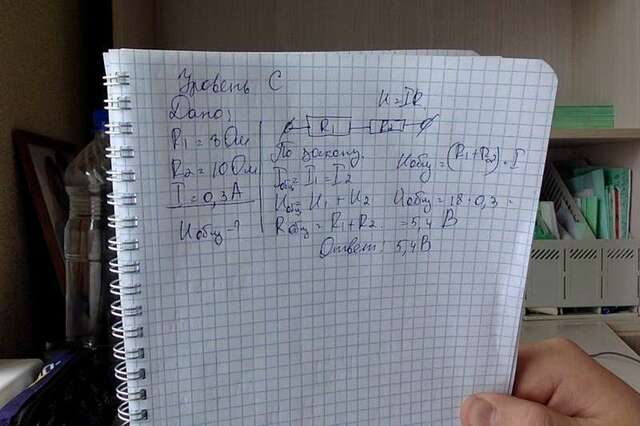 Уровень С
Дано:
R1 = 8 Ом
R2 = 10 Ом
I = 0,3 А
Uобщ - ?
U = IR
R1 R2
По закону.
Iобщ = I1 = I2
Uобщ = U1 + U2
Rобщ = R1 + R2
Uобщ = (R1 + R2) · I
Uобщ = 18 · 0,3 =
= 5,4 В
Ответ: 5,4 В